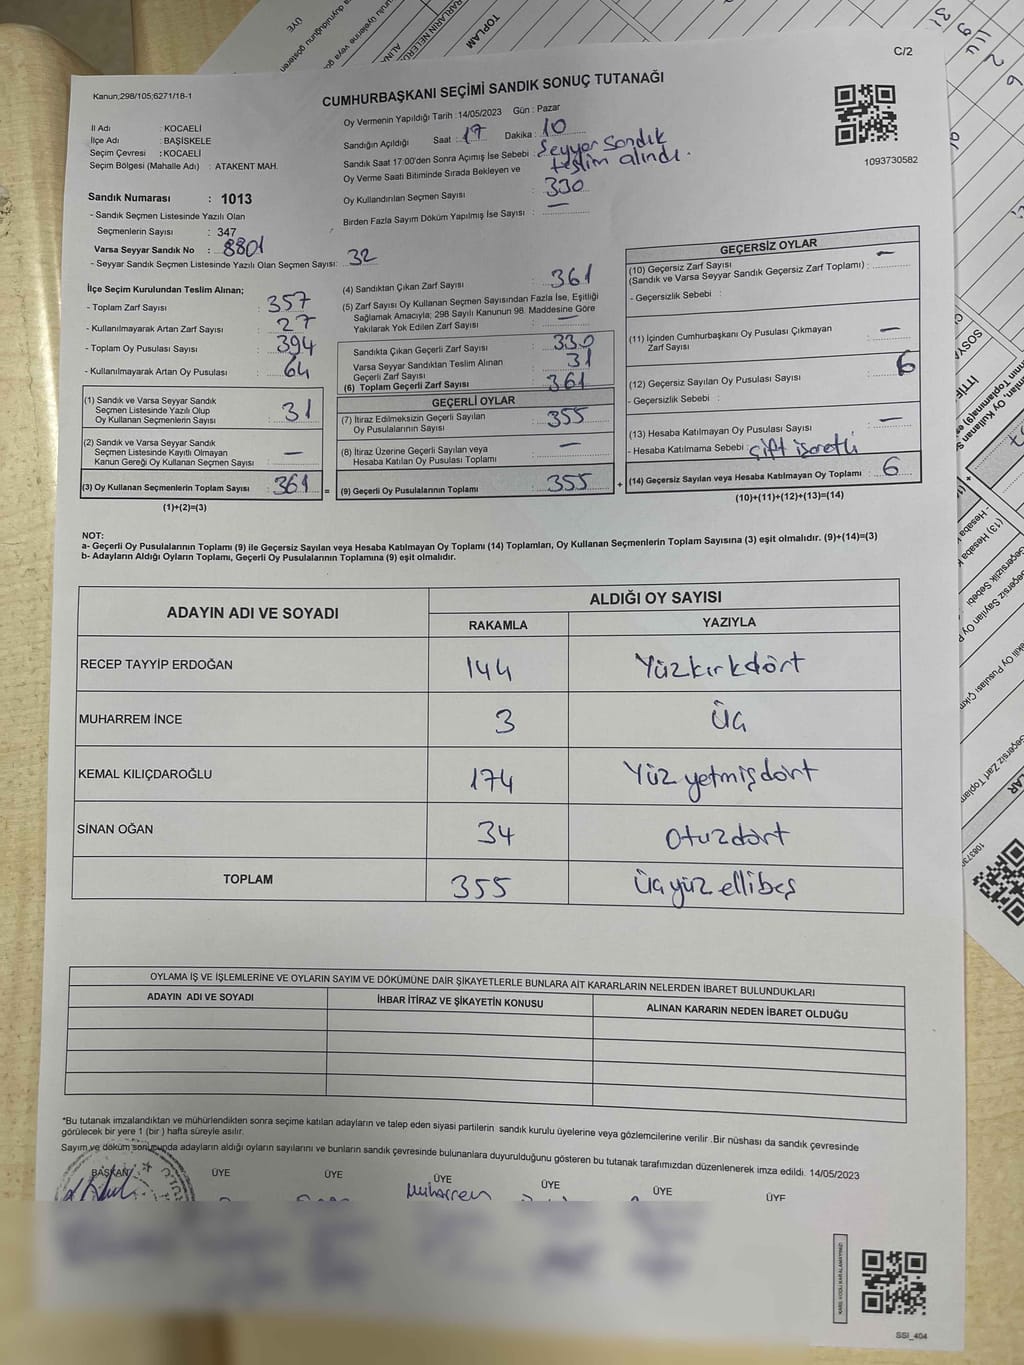 C/2
Kanun;298/105;6271/18-1
CUMHURBAŞKANI SEÇİMİ SANDIK SONUÇ TUTANAĞI
Oy Vermenin Yapıldığı Tarih :14/05/2023 Gün : Pazar
İl Adı : KOCAELİ
İlçe Adı : BAŞİSKELE
Seçim Çevresi : KOCAELİ
Seçim Bölgesi (Mahalle Adı) : ATAKENT MAH.
Sandığın Açıldığı Saat : 17 Dakika : 10
Sandık Saat 17:00'den Sonra Açımış İse Sebebi : Seyyar Sandık
teslim alındı.
Oy Verme Saati Bitiminde Sırada Bekleyen ve
Oy Kullandırılan Seçmen Sayısı : 330
Birden Fazla Sayım Döküm Yapılmış İse Sayısı : —
1093730582
Sandık Numarası : 1013
- Sandık Seçmen Listesinde Yazılı Olan
Seçmenlerin Sayısı : 347
Varsa Seyyar Sandık No : 8801
- Seyyar Sandık Seçmen Listesinde Yazılı Olan Seçmen Sayısı: 32
İlçe Seçim Kurulundan Teslim Alınan;
- Toplam Zarf Sayısı : 357
- Kullanılmayarak Artan Zarf Sayısı : 27
- Toplam Oy Pusulası Sayısı : 394
- Kullanılmayarak Artan Oy Pusulası : 64
(1) Sandık ve Varsa Seyyar Sandık
Seçmen Listesinde Yazılı Olup
Oy Kullanan Seçmenlerin Sayısı : 31
(2) Sandık ve Varsa Seyyar Sandık
Seçmen Listesinde Kayıtlı Olmayan
Kanun Gereği Oy Kullanan Seçmen Sayısı : —
(3) Oy Kullanan Seçmenlerin Toplam Sayısı : 361
(1)+(2)=(3)
=
(4) Sandıktan Çıkan Zarf Sayısı : 361
(5) Zarf Sayısı Oy Kullanan Seçmen Sayısından Fazla İse, Eşitliği
Sağlamak Amacıyla; 298 Sayılı Kanunun 98. Maddesine Göre
Yakılarak Yok Edilen Zarf Sayısı : —
Sandıkta Çıkan Geçerli Zarf Sayısı : 330
Varsa Seyyar Sandıktan Teslim Alınan
Geçerli Zarf Sayısı : 31
(6) Toplam Geçerli Zarf Sayısı : 361
GEÇERLİ OYLAR
(7) İtiraz Edilmeksizin Geçerli Sayılan
Oy Pusulalarının Sayısı : 355
(8) İtiraz Üzerine Geçerli Sayılan veya
Hesaba Katılan Oy Pusulası Toplamı : —
(9) Geçerli Oy Pusulalarının Toplamı : 355
+
GEÇERSİZ OYLAR
(10) Geçersiz Zarf Sayısı
(Sandık ve Varsa Seyyar Sandık Geçersiz Zarf Toplamı) : —
- Geçersizlik Sebebi :
(11) İçinden Cumhurbaşkanı Oy Pusulası Çıkmayan
Zarf Sayısı : —
(12) Geçersiz Sayılan Oy Pusulası Sayısı : 6
- Geçersizlik Sebebi :
(13) Hesaba Katılmayan Oy Pusulası Sayısı : —
- Hesaba Katılmama Sebebi : Çift işaretli
(14) Geçersiz Sayılan veya Hesaba Katılmayan Oy Toplamı : 6
(10)+(11)+(12)+(13)=(14)
NOT:
a- Geçerli Oy Pusulalarının Toplamı (9) ile Geçersiz Sayılan veya Hesaba Katılmayan Oy Toplamı (14) Toplamları, Oy Kullanan Seçmenlerin Toplam Sayısına (3) eşit olmalıdır. (9)+(14)=(3)
b- Adayların Aldığı Oyların Toplamı, Geçerli Oy Pusulalarının Toplamına (9) eşit olmalıdır.
ADAYIN ADI VE SOYADI
ALDIĞI OY SAYISI
RAKAMLA YAZIYLA
RECEP TAYYİP ERDOĞAN 144 Yüzkırkdört
MUHARREM İNCE 3 Üç
KEMAL KILIÇDAROĞLU 174 Yüz yetmişdört
SİNAN OĞAN 34 Otuzdört
TOPLAM 355 Üçyüz ellibeş
OYLAMA İŞ VE İŞLEMLERİNE VE OYLARIN SAYIM VE DÖKÜMÜNE DAİR ŞİKAYETLERLE BUNLARA AİT KARARLARIN NELERDEN İBARET BULUNDUKLARI
ADAYIN ADI VE SOYADI İHBAR İTİRAZ VE ŞİKAYETİN KONUSU ALINAN KARARIN NEDEN İBARET OLDUĞU
*Bu tutanak imzalandıktan ve mühürlendikten sonra seçime katılan adayların ve talep eden siyasi partilerin sandık kurulu üyelerine veya gözlemcilerine verilir .Bir nüshası da sandık çevresinde
görülecek bir yere 1 (bir ) hafta süreyle asılır.
Sayım ve döküm sonucunda adayların aldığı oyların sayılarını ve bunların sandık çevresinde bulunanlara duyurulduğunu gösteren bu tutanak tarafımızdan düzenlenerek imza edildi. 14/05/2023
BAŞKAN ÜYE ÜYE ÜYE ÜYE ÜYE ÜYE
Muharrem
SSI_404